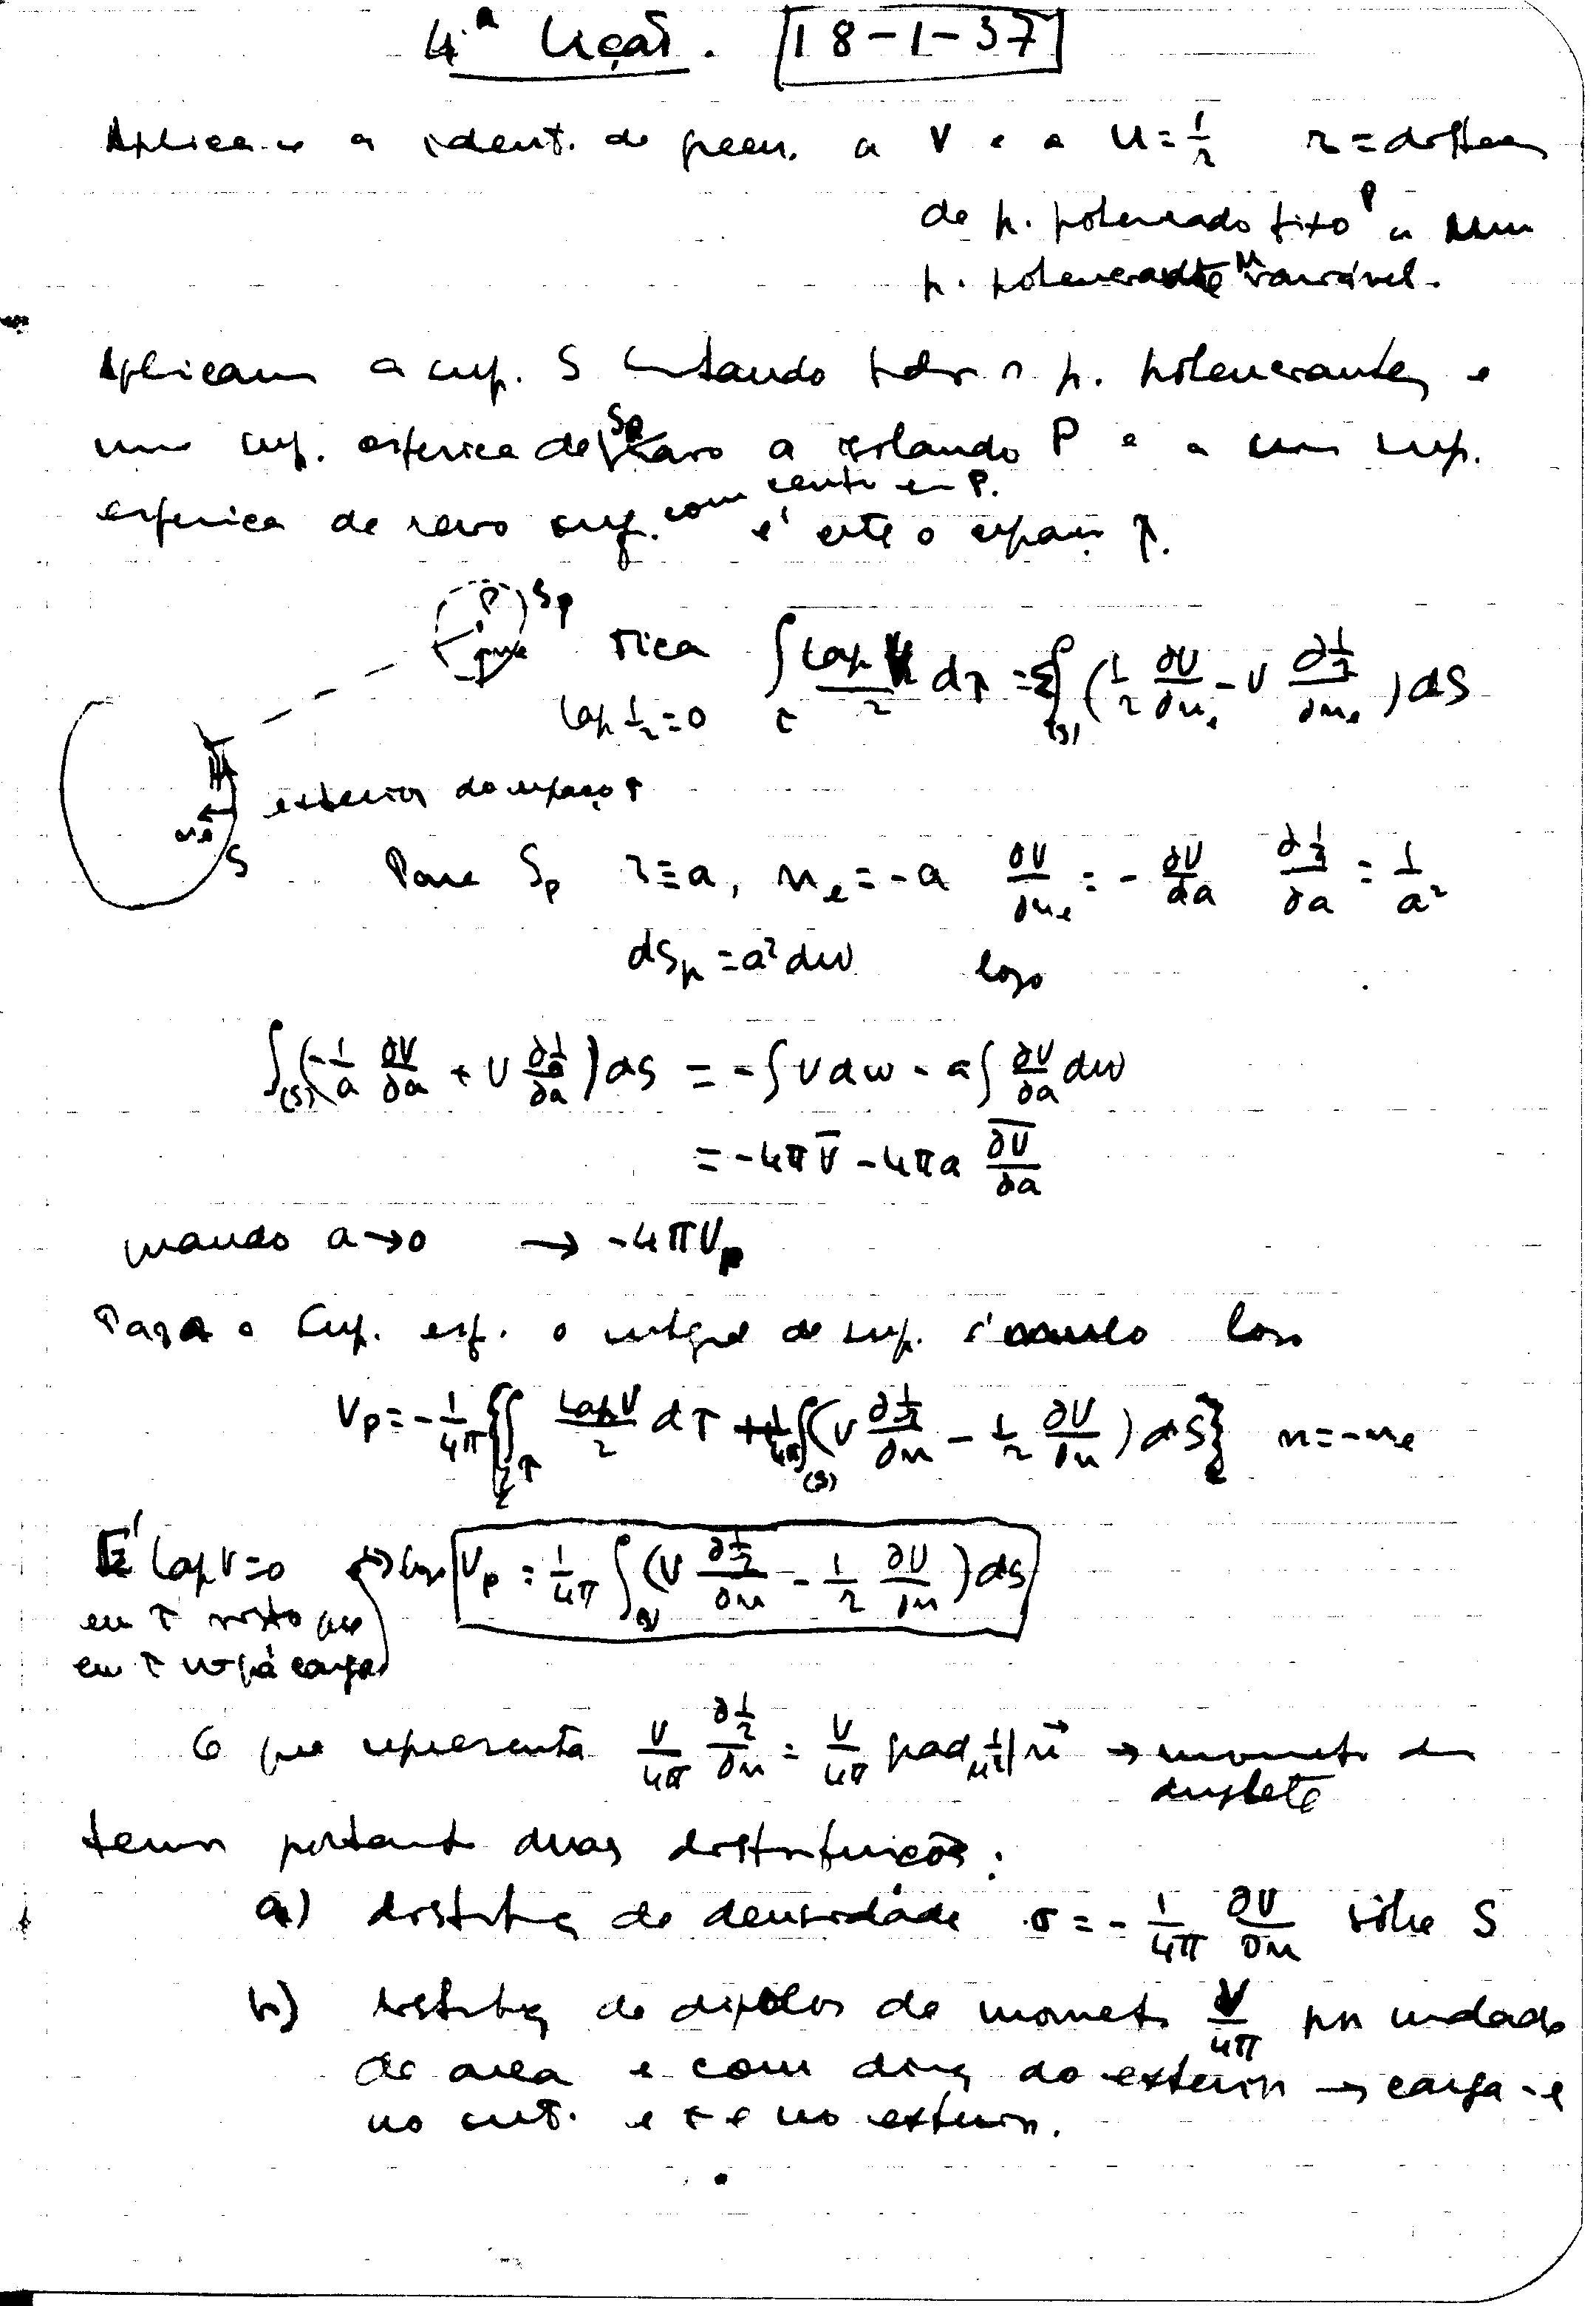 4.ª Lição. 18-1-37
Aplica-se a ident. de Green. a V e a U = 1/r r = distan
de p. potenciado fixo P a um
p. potenciante M variável.
Aplicam a sup. S cortando todos os p. potenciantes e
uma sup. esferica de raio a isolando P e a uma sup.
Sp
esferica de raio com centro em P. é este o espaço τ.
P Sp Fica ∫τ Lap V / r dτ = Σ∫(S) (1/r ∂V/∂ne - V ∂1/r/∂ne) dS
Lap 1/r = 0
exterior do espaço τ
ne
S
Para Sp r ≡ a, ne = -a ∂V/∂ne = - ∂V/∂a ∂1/r/∂a = 1/a²
dSp = a² dω logo
∫(S) (-1/a ∂V/∂a + V ∂1/a/∂a) dS = -∫V dω - a∫ ∂V/∂a dω
= -4π V̅ - 4πa ∂V/∂a
quando a→0 → -4πVp
Para a Sup. esf. o integral de sup. é nulo logo
Vp = -1/4π {∫τ Lap V / r dτ + ∫(S) (V ∂1/r/∂n - 1/r ∂V/∂n) dS} n = -ne
É Lap V = 0 logo Vp = 1/4π ∫(S) (V ∂1/r/∂n - 1/r ∂V/∂n) dS
em τ visto que
em τ não há cargas
O que representa V/4π ∂1/r/∂n = V/4π grad 1/r | n⃗ → momento de
duplete
temos portanto duas distribuições:
a) distribuiç de densidade σ = - 1/4π ∂V/∂n sobre S
b) distribuiç de dipolos de momento V/4π por unidade
de area e com direç do exterior → carga -e
no int. e +e no exterior.